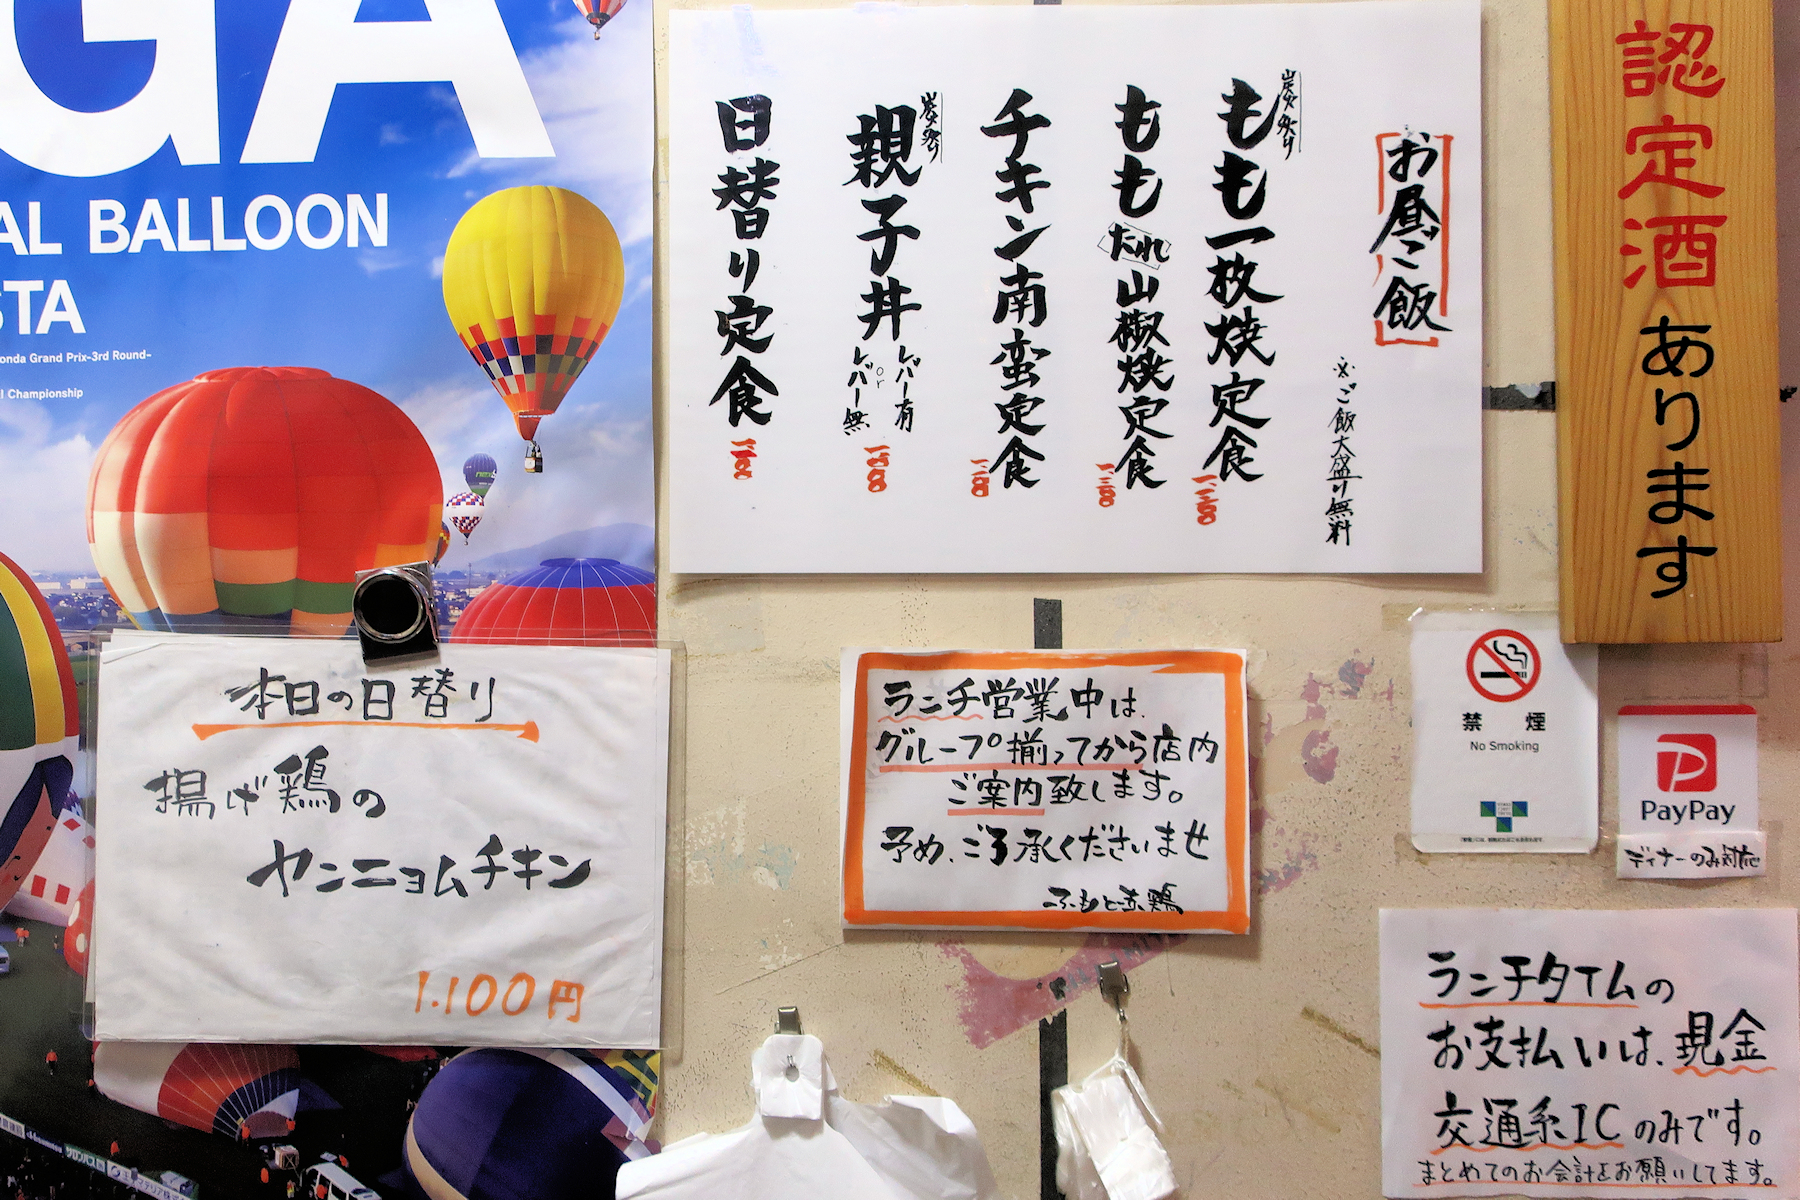 GA
AL BALLOON
STA
onda Grand Prix-3rd Round-
l Championship
お昼ご飯
※ご飯大盛り無料
炭火焼り
もも一枚焼定食
ももたれ山椒焼定食
チキン南蛮定食
親子丼
レバー有
or
レバー無
日替り定食
認定酒あります
本日の日替り
揚げ鶏の
ヤンニョムチキン
1.100円
ランチ営業中は、
グループ揃ってから店内
ご案内致します。
予め、ご了承くださいませ
ふもと赤鶏
禁煙
No Smoking
PayPay
ディナーのみ対応
ランチタイムの
お支払いは、現金
交通系ICのみです。
まとめてのお会計をお願いしてます。